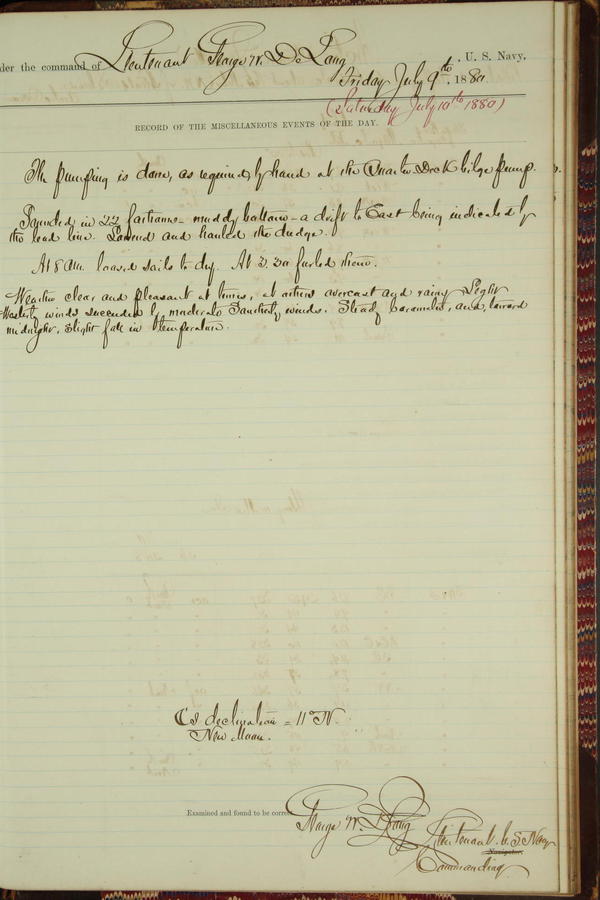 der the command of Lieutenant George W. De Long, U. S. Navy,
Friday July 9th, 1880.
(Saturday July 10th 1880)
RECORD OF THE MISCELLANEOUS EVENTS OF THE DAY.
The pumping is done, as required, by hand at the Quarter Deck bilge pump.
Sounded in 22 fathoms - muddy bottom - a drift to East being indicated by
the lead line. Lowered and hauled the dredge.
At 8 AM. loosed sails to dry. At 3.30 furled them.
Weather clear and pleasant at times, at others overcast and rainy. Light
Westerly winds succeeded by moderate Southerly winds. Steady barometer, and, toward
midnight, slight fall in temperature.
declination = 11° N.
New Moon.
Examined and found to be correct.
George W. De Long Lieutenant U.S Navy
Navigator.
Commanding